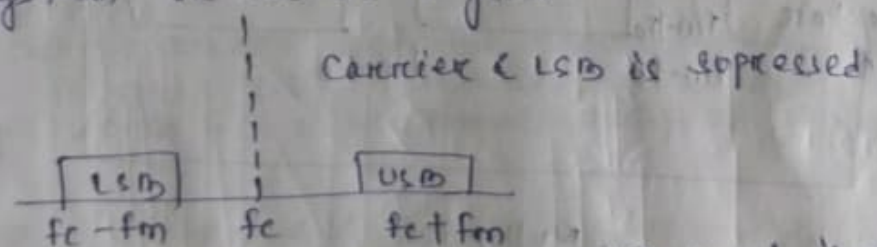 Carrier & LSB is sopressed
LSB USB
fc-fm fc fc+fm